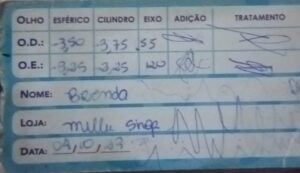 OLHO ESFÉRICO CILINDRO EIXO ADIÇÃO TRATAMENTO
O.D.: -3,50 -3,75 55
O.E.: -3,25 -3,25 120
NOME: Brenda
LOJA:
DATA: 04,10,23